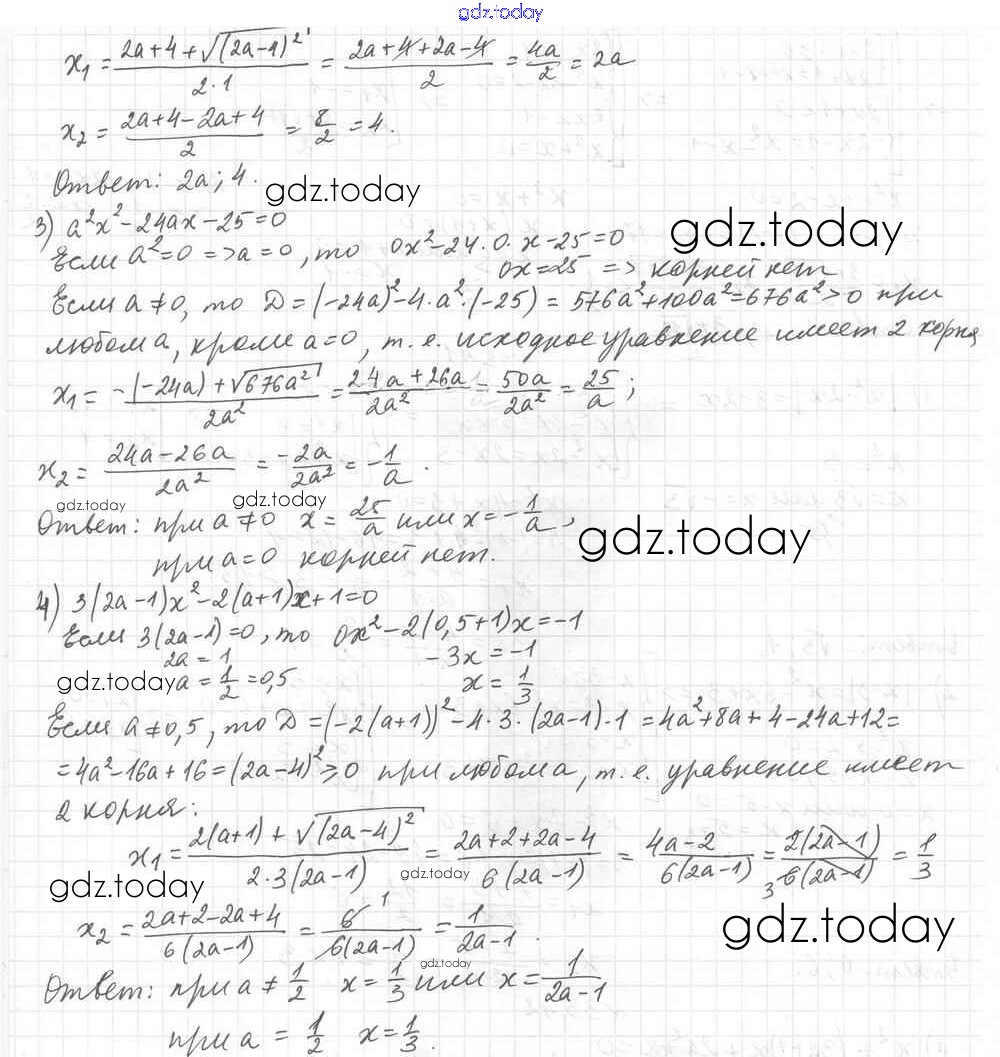 gdz.today
x₁ = (2a+4+√(2a-4)²)/(2·1) = (2a+4+2a-4)/2 = 4a/2 = 2a
x₂ = (2a+4-2a+4)/2 = 8/2 = 4.
Ответ: 2a; 4.
gdz.today
3) a²x²-24ax-25=0
gdz.today
Если a²=0 => a=0, то 0x²-24·0·x-25=0
0x=25 => корней нет
Если a≠0, то D=(-24a)²-4·a²·(-25) = 576a²+100a²=676a²>0 при
любом a, кроме a=0, т.е. исходное уравнение имеет 2 корня
x₁ = (-(-24a)+√676a²)/2a² = (24a+26a)/2a² = 50a/2a² = 25/a;
x₂ = (24a-26a)/2a² = -2a/2a² = -1/a.
gdz.today gdz.today
Ответ: при a≠0 x = 25/a или x = -1/a,
gdz.today
при a=0 корней нет.
4) 3(2a-1)x²-2(a+1)x+1=0
Если 3(2a-1)=0, то 0x²-2(0,5+1)x=-1
2a=1 -3x=-1
gdz.today a=1/2=0,5 x=1/3
Если a≠0,5, то D=(-2(a+1))²-4·3·(2a-1)·1 = 4a²+8a+4-24a+12=
=4a²-16a+16=(2a-4)²≥0 при любом a, т.е. уравнение имеет
2 корня:
x₁ = (2(a+1)+√(2a-4)²)/(2·3(2a-1)) = (2a+2+2a-4)/(6(2a-1)) = (4a-2)/(6(2a-1)) = 2(2a-1)/(6(2a-1)) 3 = 1/3
gdz.today gdz.today
x₂ = (2a+2-2a+4)/(6(2a-1)) = 6 1/(6(2a-1)) = 1/(2a-1).
gdz.today
gdz.today
Ответ: при a≠1/2 x=1/3 или x=1/(2a-1)
при a=1/2 x=1/3.